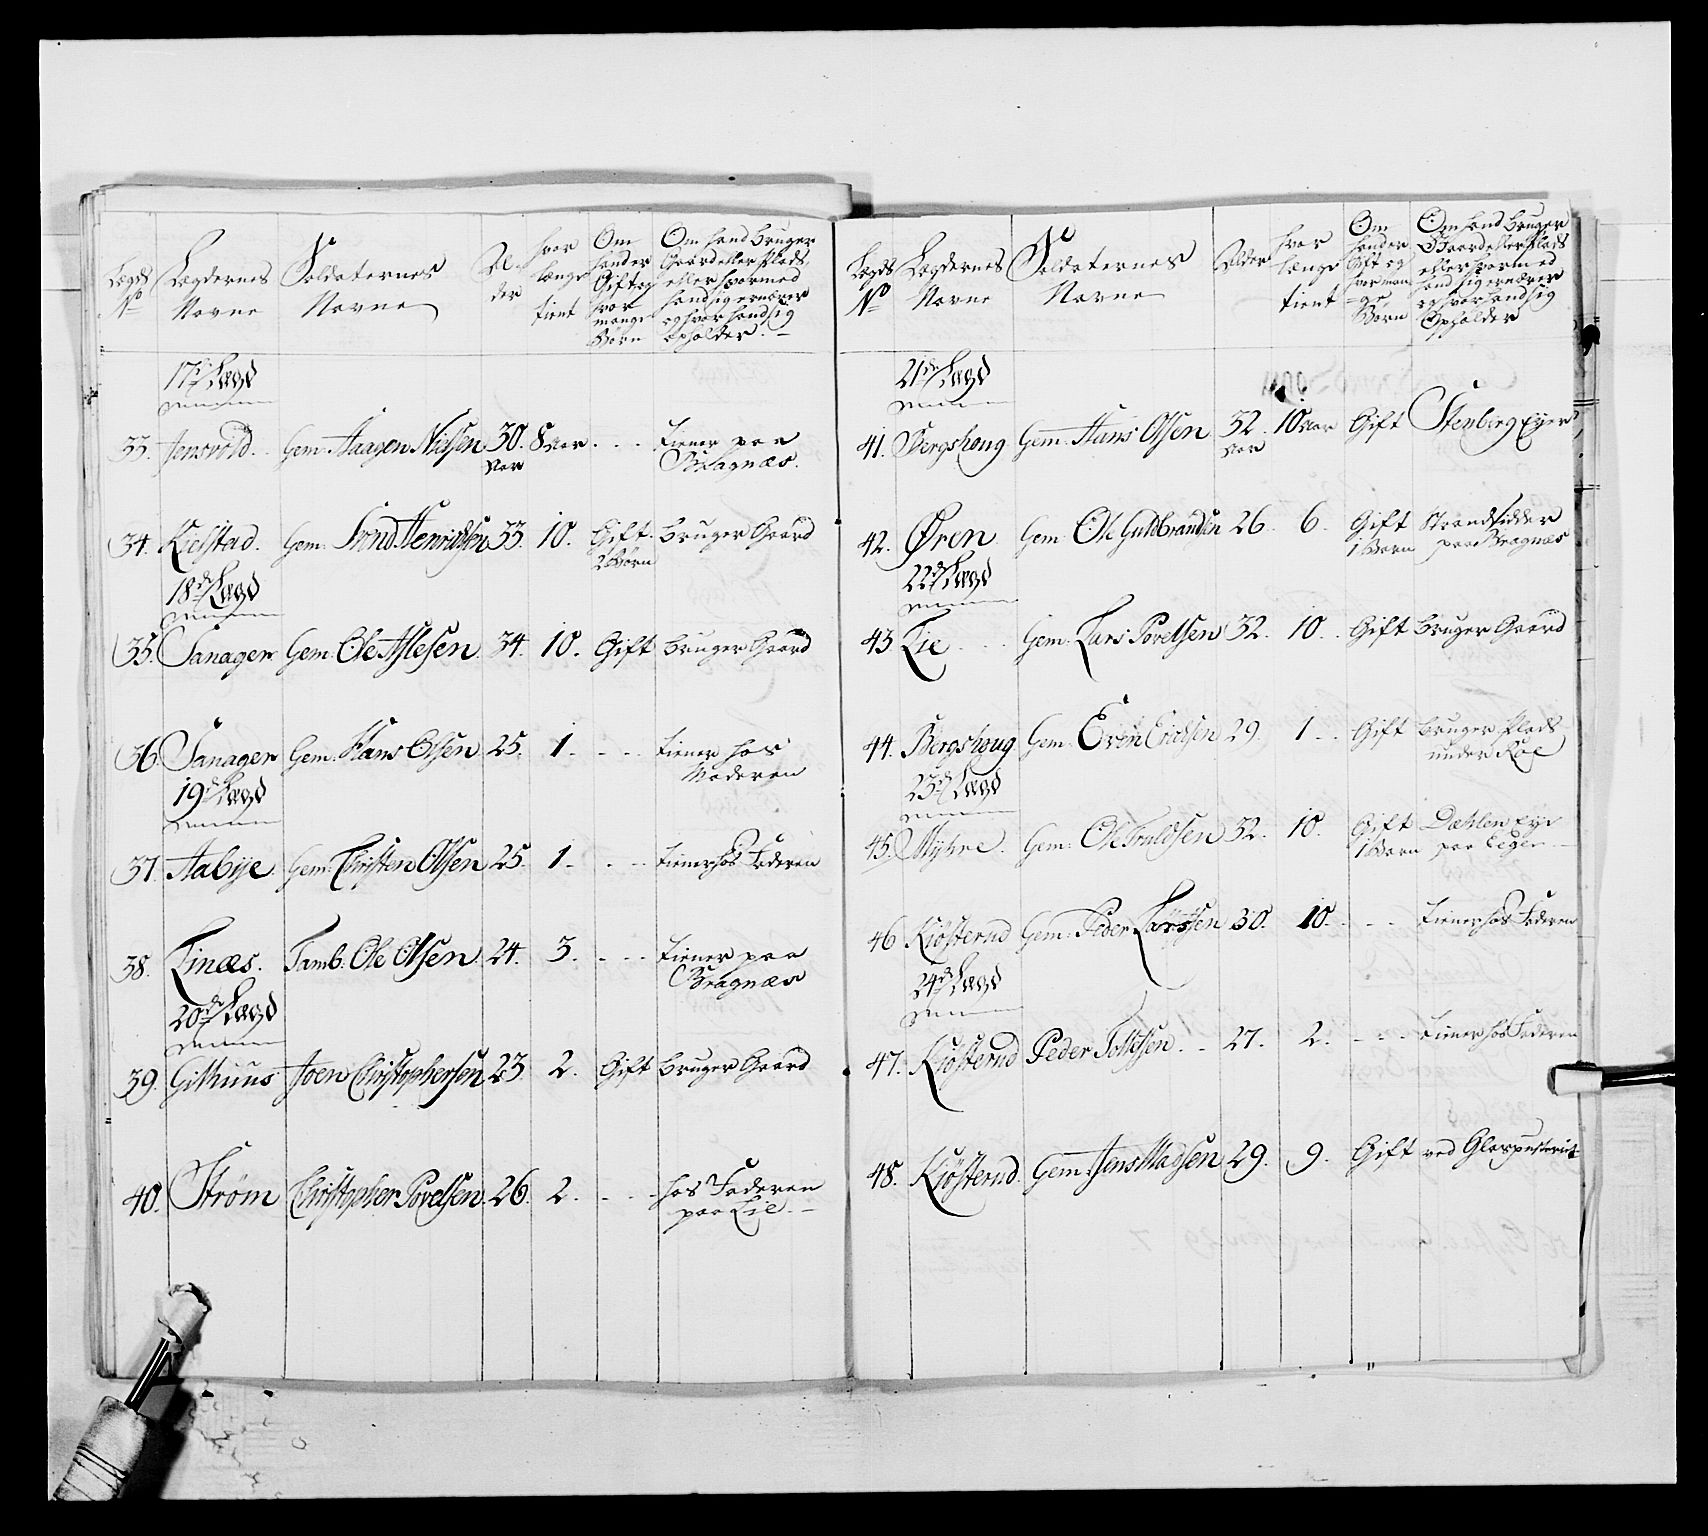 Lægds No | Lægdernes Navne | Soldaternes Navne | Alder | hvor længe tient | Om hand er Gift og hvor mange Børn | Om hand bruger Gaard eller Plads, eller hvormed hand sig ernærer og hvor hand sig opholder.
17de Lægd
33. Jensvold. Gem: Aagen Nielsen 30. Aar 8 Aar. . . . tiener paa Bragnæs.
34. Kielstad. Gem: Trond Henrichsen 33. 10. Gift. 2 Børn bruger Gaard
18de Lægd
35. Sanager Gem: Ole Aslesen. 34. 10. Gift bruger Gaard
36. Sanager Gem: Hans Olsen. 25. 1. . . . tiener hos Moderen
19de Lægd
37. Aabÿe. Gem: Christen Olsen 25. 1. . . . tiener hos Faderen
38. Linæs. Tamb: Ole Olsen. 24. 3. . . . tiener paa Bragnæs
20de Lægd
39. Gilhuus Joen Christophersen 23. 2. Gift bruger Gaard
40. Strøm Christopher Povelsen. 26. 2. . . . hos Faderen paa Lie.
Lægds No | Lægdernes Navne | Soldaternes Navne | Alder | hvor længe tient | Om hand er Gift og hvor mange Børn | Om hand bruger Gaard eller Plads eller hvormed hand sig ernærer og hvor hand sig Opholder
21de Lægd
41. Bergshoug Gem: Hans Olsen 32. Aar 10 Aar Gift Stenberg Eyer
42. Øren Gem: Ole Guldbrandsen 26. 6. Gift 1 Barn Strandsidder paa Bragnæs
22de Lægd
43 Lie Gem: Lars Povelsen 32. 10. Gift bruger Gaard
44. Bergshoug. Gem: Even Erichsen 29. 1 . . Gift bruger Plads under Roe
23de Lægd
45. Myhre. Gem: Ole Truldsen 32. 10. Gift 1 Barn Dahlen Eye paa Eger
46 Kiösterud Gem: Peder Larssen 30. 10. . . . tiener hos Faderen
24de Lægd
47. Kiösterud Peder Tollefsen . . 27. 2. . . . tiener hos Faderen
48. Kiösterud. Gem: Jens Madsen 29. 9. Gift ved Glaspusteriet